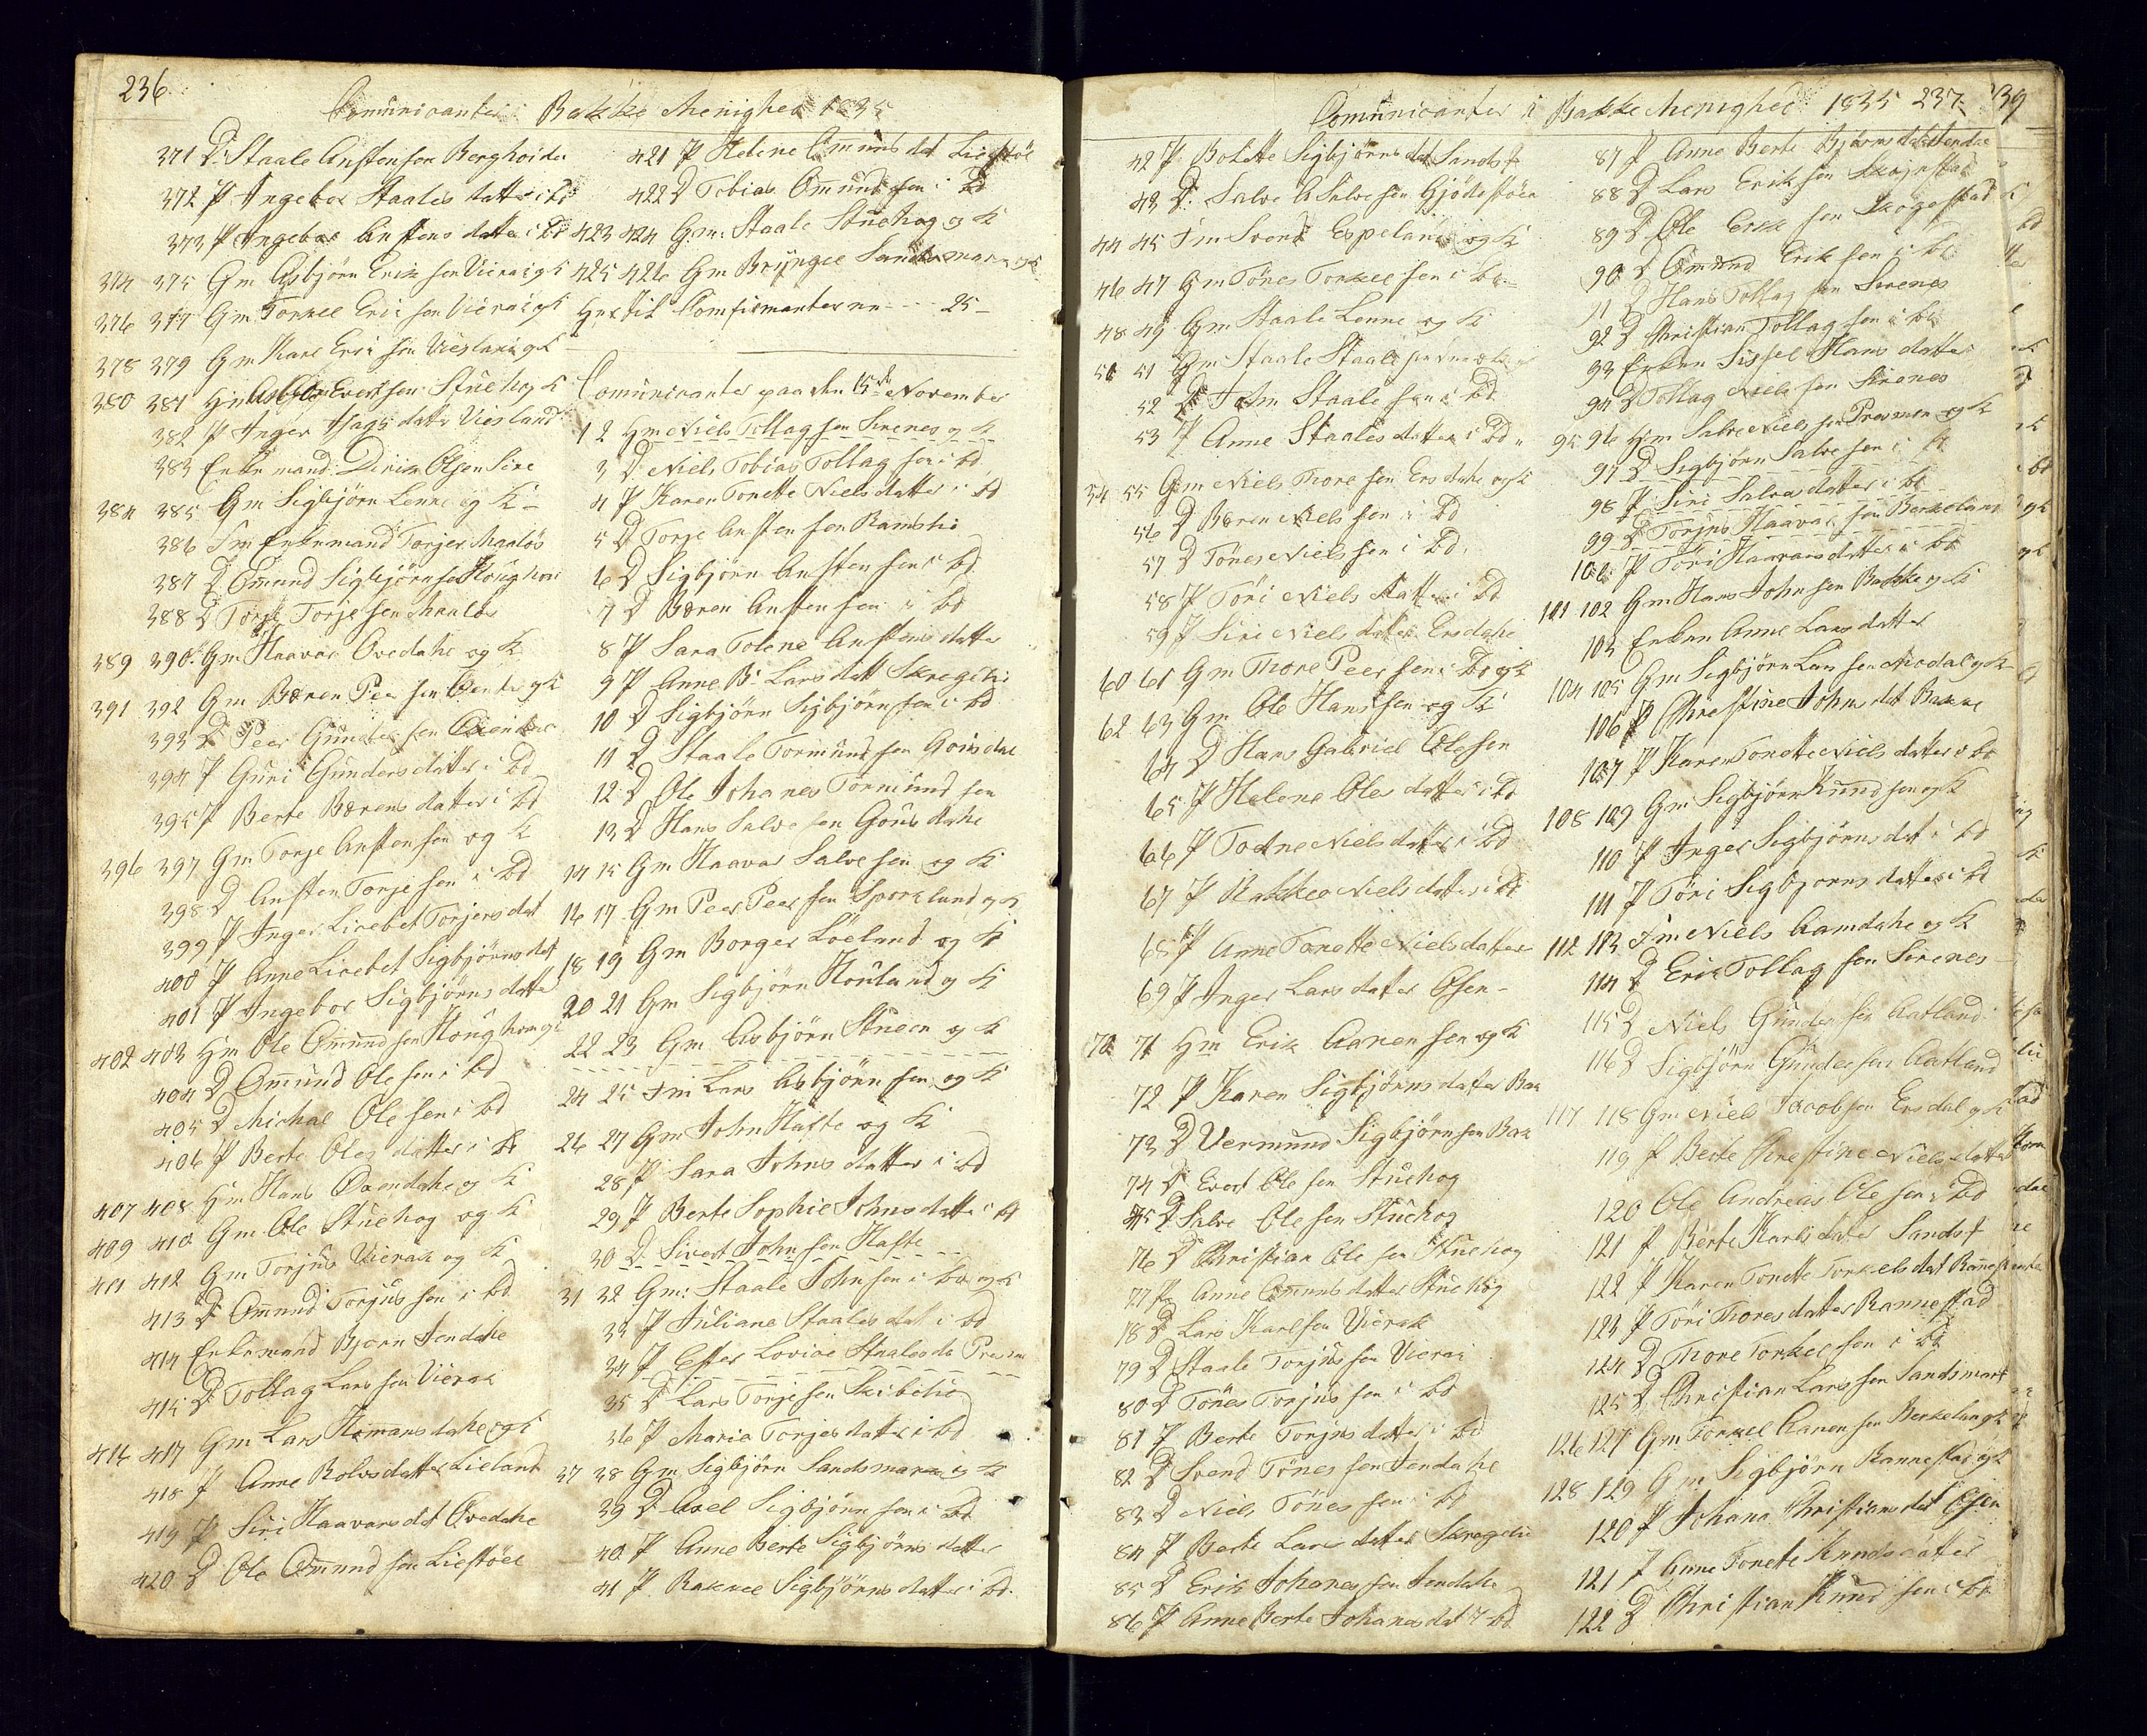 236
Comunicanter i Bakke Menighed 1835
371 D. Staale Anstensen Berghoiden
372 P Ingebor Staales datter i bd
373 P Ingebor Anstens datter i bd
374 375 Gm Asbjörn Erik sen Vierak og K
376 377 Gm Torkel Eric sen Vierak og K
378 379 Gm Karl Eri sen Viesland og K
380 381 Hm Evertsen Stuehog K
382 P Inger datr Viesland
383 Enkemand Dirik Olsen Sire
384 385 Gm Sigbjörn Lenne og K
386 Fm Enkemand Torjer Maaløs
387 D. Omund Sigbjörnsen Houghom
388 D Torje Torje sen Maaløs
389 390 Gm Haavar Ovedahl og K
391 392 Gm Børen Peer sen og K
393 D Peer Gunder sen
394 P Guri Gunders datter i bd
395 P Berte Børens datter i bd
396 397 Gm Torje Anstensen og K
398 D Ansten Torje sen i bd
399 P Inger Lisebet Torjers dat
400 P Anne Lisebet Sigbjörns dat
401 P Ingebor Sigbjörns datter
402 403 Hm Ole Omund sen Houghom og K
404 D Omund Ole sen i bd
405 D Michal Ole sen i bd
406 P Berte Oles datter i bd
407 408 Hm Hans Oxendahl og K
409 410 Gm Ole Stuehog og K
411 412 Gm Torjus Vierak og K
413 D Omund Torjus sen i bd
414 Enkemand Bjorn Jendahl
415 D Tollag Lars sen Vierak
416 417 Gm Lars Homansdahl og K
418 P Anne Rolvsdatter Lieland
419 P Siri Haavars dat Ovedahl
420 D Ole Omund sen Liestöel
421 P Helene Omunds dat Liestöel
422 D Tobias Omund sen i bd
423 424 Gm: Staale Stuehog og K
425 426 Gm Bryngel Sandsmark og K
Confirmanterne 25
Comunicanter paa den 15de November
1 2 Hm Niels Tollag sen Sirenes og K
3 D Niels Tobias Tollag sen i bd
4 P Karen Tonette Niels datter i bd
5 D Torje Ansten sen Ramsli
6 D Sigbjörn Ansten sen i bd
7 D Børen Ansten sen i bd
8 P Sara Tolene Anstens datter
9 P Anne B. Lars datt Skregeli
10 D Sigbjörn Sigbjörnsen i bd
11 D Staale Tormund sen Gousdal
12 D Ole Johanes Tormund sen
13 D Hans Salve sen Gousdahl
14 15 Gm Haavar Salve sen og K
16 17 Gm Peer Peer sen Sporkland og K
18 19 Gm Borger Löeland og K
20 21 Gm Sigbjörn Houland og K
22 23 Gm Asbjörn Stueen og K
24 25 Fm Lars Asbjörn sen og K
26 27 Gm John Hafte og K
28 P Sara Johns datter i bd
29 P Berte Sophie Johns datter i bd
30 D. Sivert John sen Hafte
31 32 Gm: Staale John sen i bd og K
33 P Juliane Staales dat i bd
34 P Ester Lovise Staales da
35 D Lars Torje sen Skibelie
36 P Maria Torjes datter i bd
37 38 Gm Sigbjörn Sandsmark og K
39 D Axel Sigbjörn sen i bd
40 P Anne Berte Sigbjörns datter
41 P. Rakkel Sigbjörns datter i bd.
Comunicanter i Bakke Menighed 1835 237
39
42 P. Bolette Sigbjörns dat Sandst
43 D. Salve A Salve sen Gjödestöel
44 45 Fm Svend Espeland og K
46 47 Gm Tönes Torkel sen i bd
48 49 Gm Staale Lenne og K
50 51 Gm Staale Staale sen
52 D John Staale sen i bd
53 P Anne Staales datter i bd
54 55 Gm Niels Thore sen Ersdahl og K
56 D Børen Niels sen i bd
57 D Tönes Niels sen i bd
58 P Töri Niels datter i bd
59 P Siri Niels datter Ersdahl
60 61 Gm Thore Peer sen i bd og K
62 63 Gm Ole Hans sen og K
64 D Hans Gabriel Olesen
65 P Helene Oles datter i bd
66 P Todne Niels datter i bd
67 P Rakkel Niels datter i bd
68 P Anne Tonette Niels datter
69 P Inger Lars datter Osen
70 71 Hm Erik Aanen sen og K
72 P Karen Sigbjörns datter Bak
73 D Vermund Sigbjörn sen Bak
74 D Evert Ole sen Stuehog
75 D Salve Ole sen Stuehog
76 D Christian Ole sen Stuehog
77 P Anne Omunds datter Stuehog
78 D Lars Karl sen Vierak
79 D Staale Torjus sen Vierak
80 D Tönes Torjus sen i bd
81 P Berte Torjus datter i bd
82 D Svend Tönes sen Jendahl
83 D Niels Tönes sen i bd
84 P Berte Lars datter Skregelie
85 D Erik Johanes sen Jendahl
86 P Anne Berte Johanes dat i bd
87 P Anne Berte Bjorns dat Jendal
88 D Lars Erik sen Skogestad
89 D Ole Erik sen Skogestad
90 D Omund Erik sen i bd
91 D Hans Tollag sen Sirenes
92 D Christian Tollag sen i bd
93 Enken Sissel Hans datter
94 D Tollag Niels sen Sirenes
95 96 Hm Salve Niels sen Presmon og K
97 D Sigbjörn Salve sen i bd
98 P Siri Salves datter i bd
99 D Torjus Haavar sen Berkeland
100 P Töri Haavars datter i bd
101 102 Gm Hans John sen Bakke og K
103 Enken Anne Lars datter
104 105 Gm Sigbjörn Lars sen Modal og K
106 P Christine Johns dat Bakke
107 P Karen Tonette Niels datter i bd
108 109 Gm Sigbjörn Knud sen og K
110 P Inger Sigbjörns dat i bd
111 P Töri Sigbjorns datter i bd
112 113 Fm Niels Aamdahl og K
114 D Erik Tollag sen Sirenes
115 D Niels Gunder sen Aatland
116 D Sigbjörn Gunder sen Aatland
117 118 Gm Niels Jacob sen Ersdal og K
119 P Berte Christine Niels datter
120 Ole Andreas Ole sen i bd
121 P Berte Karls datter Sandst
122 P Karen Tonette Torkels dat Rannest
123 P Töri Thores datter Rannestad
124 D Thore Torkel sen i bd
125 D Christian Lars sen Sandsmark
126 127 Gm Torkel Aanen sen Berkeland og K
128 129 Gm Sigbjörn Rannestad og K
120 P Johana Christians dat Osen
121 P Anne Tonette Knuds datter
122 D Christian Knud sen i bd